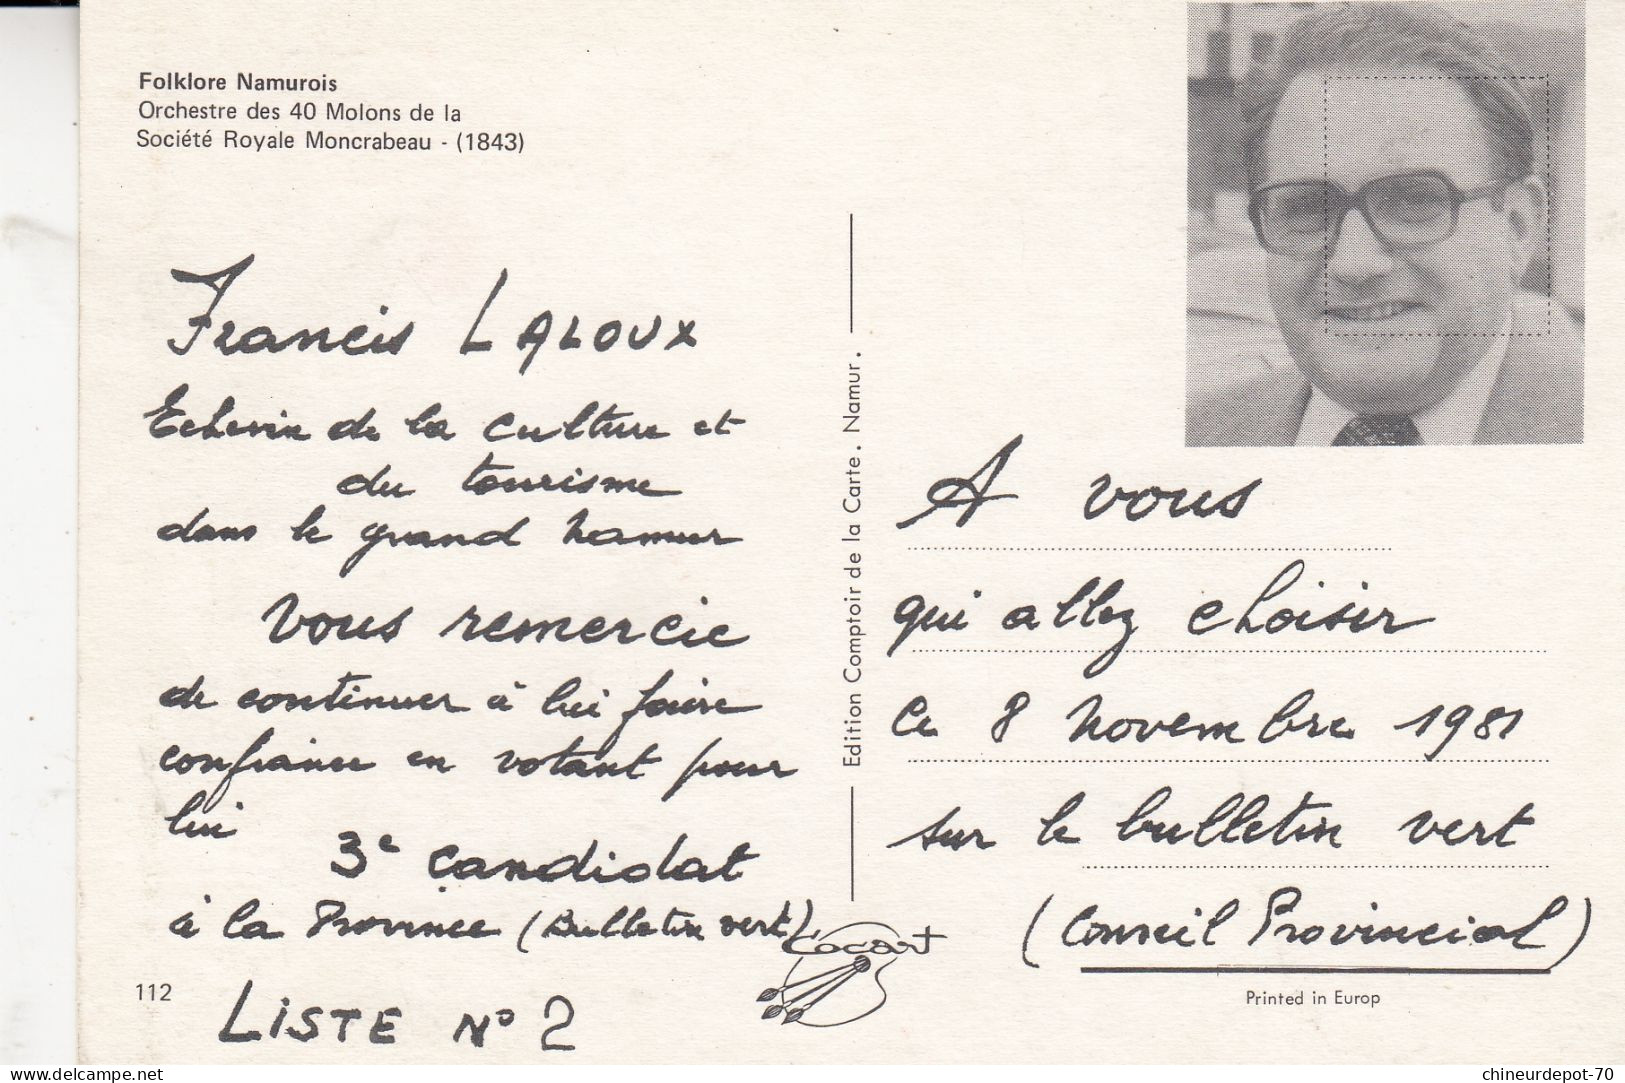 Folklore Namurois
Orchestre des 40 Molons de la
Société Royale Moncrabeau - (1843)
Francis LALOUX
Echevin de la culture et
du tourisme
dans le grand Namur
Vous remercie
de continuer à lui faire
confiance en votant pour
lui
3e candidat
à la Province (Bulletin vert)
LISTE N° 2
112
Edition Comptoir de la Carte. Namur.
Cocart
A vous
qui allez choisir
ce 8 novembre 1981
sur le bulletin vert
(Conseil Provincial)
Printed in Europ
chineurdepot-70